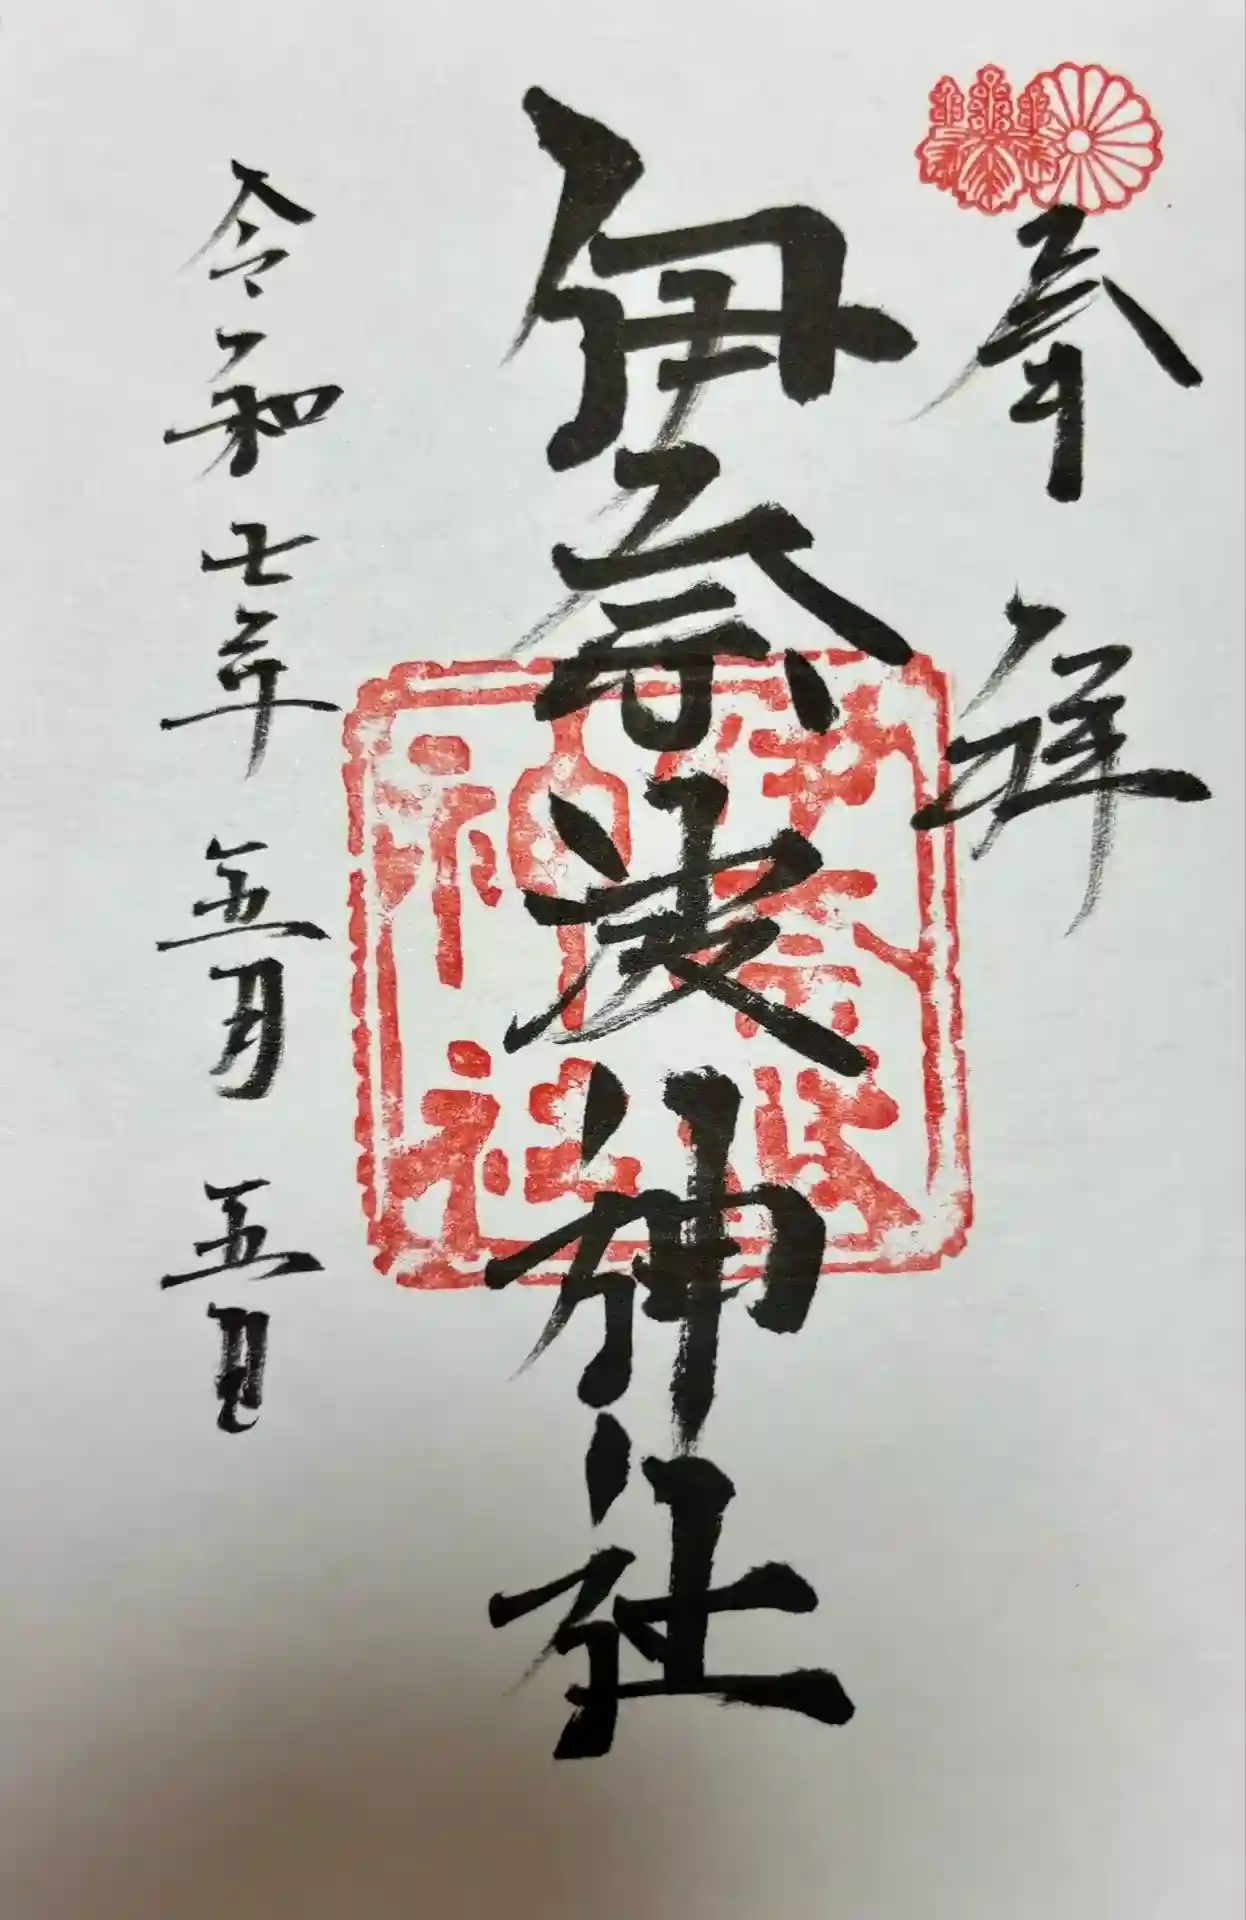 奉拝
伊奈波神社
伊奈波
神社
令和七年 五月 五日